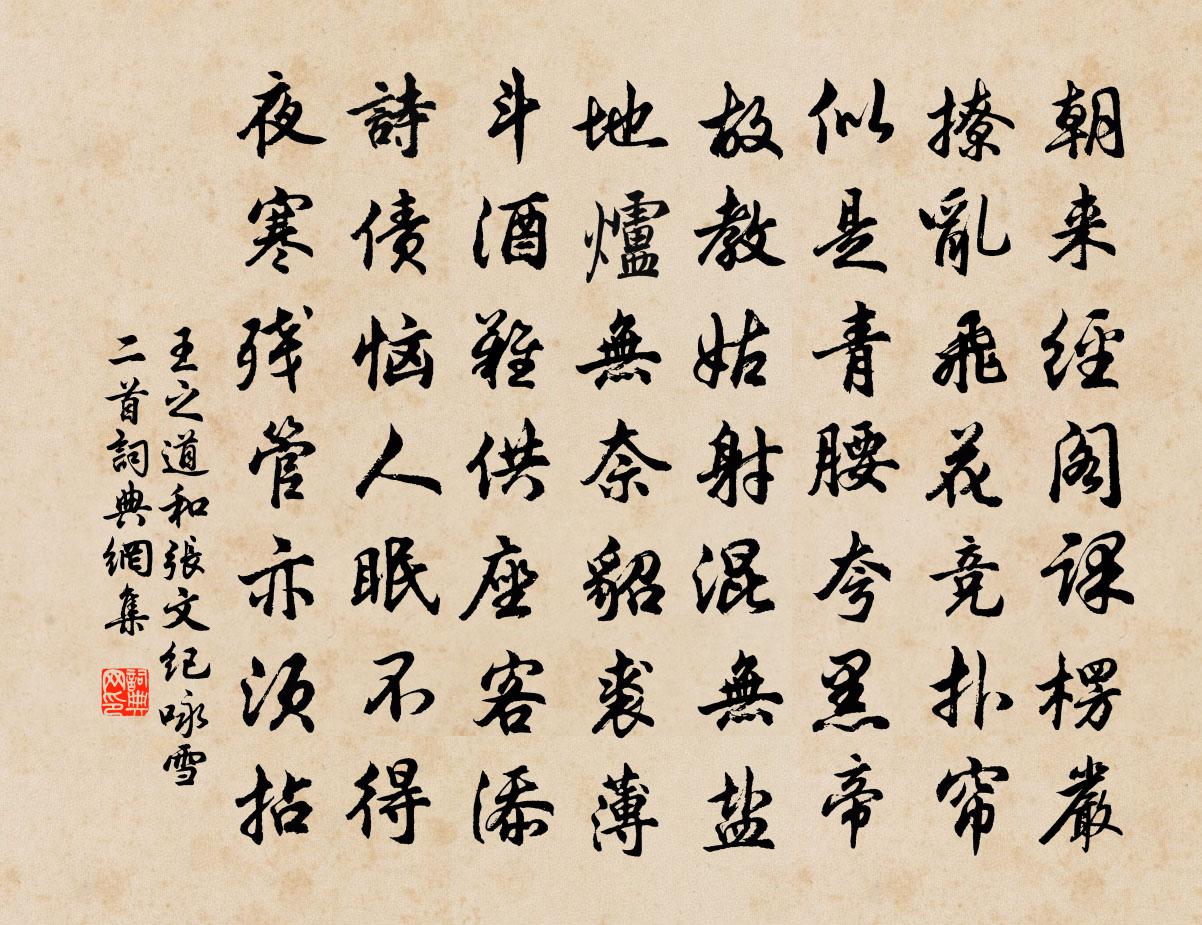 朝来經阁课楞嚴
撩亂飛花竞扑帘
似是青腰夸黑帝
故教姑射混無盐
地爐無奈貂裘薄
斗酒难供座客添
詩债恼人眠不得
夜寒残管亦须拈
王之道和張文纪咏雪
二首詞典網集
詞典网印